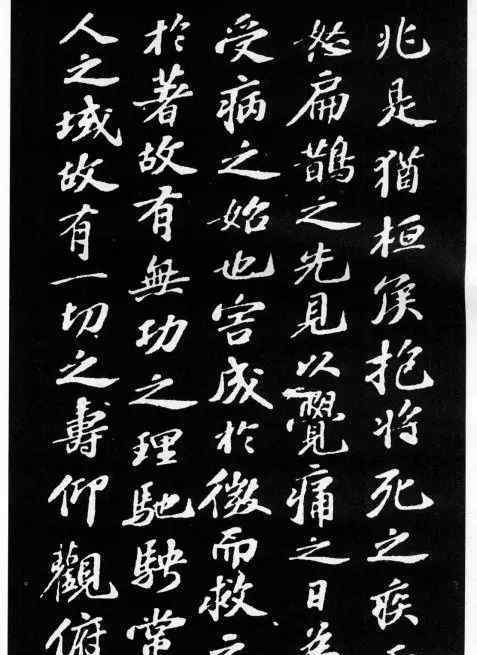 兆是猶桓侯抱將死之疾
怒扁鵲之先見以覺痛之日為
受病之始也害成於微而救之
於著故有無功之理馳騁常
人之域故有一切之壽仰觀俯